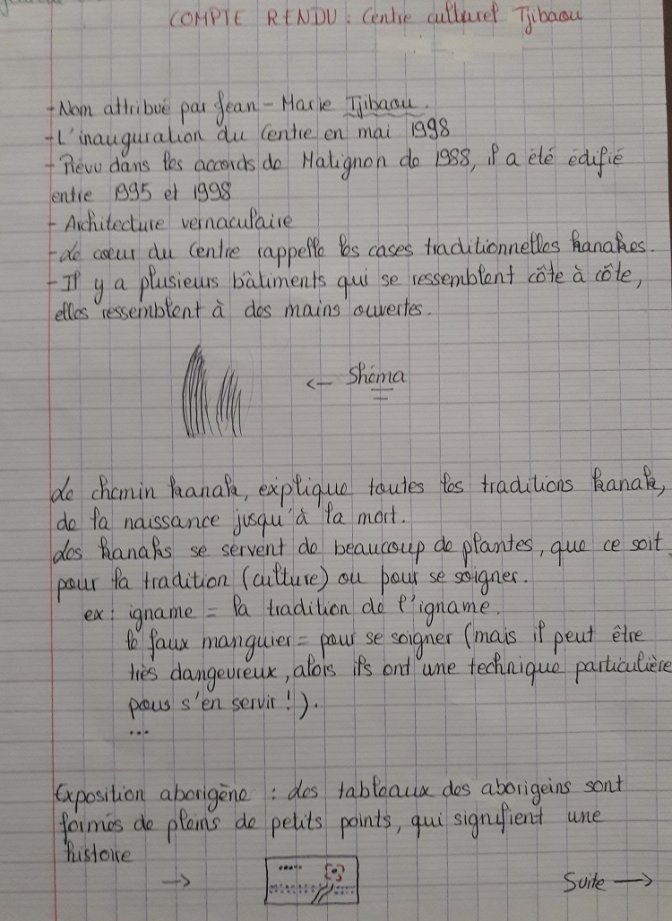 COMPTE RENDU : Centre culturel Tjibaou
- Nom attribué par Jean-Marie Tjibaou.
- L'inauguration du Centre en mai 1998
- Prévu dans les accords de Matignon de 1988, il a été édifié
entre 1995 et 1998
- Architecture vernaculaire
- Le coeur du Centre rappelle les cases traditionnelles kanakes.
- Il y a plusieurs bâtiments qui se ressemblent côte à côte,
elles ressemblent à des mains ouvertes.
← Shéma
Le chemin kanak, explique toutes les traditions kanak,
de la naissance jusqu'à la mort.
Les kanaks se servent de beaucoup de plantes, que ce soit
pour la tradition (culture) ou pour se soigner.
ex : igname = la tradition de l'igname.
le faux manguier = pour se soigner (mais il peut être
très dangeureux, alors ils ont une technique particulière
pous s'en servir !).
...
Exposition aborigène : des tableaux des aborigeins sont
formés de pleins de petits points, qui signifient une
histoire
→
Suite →